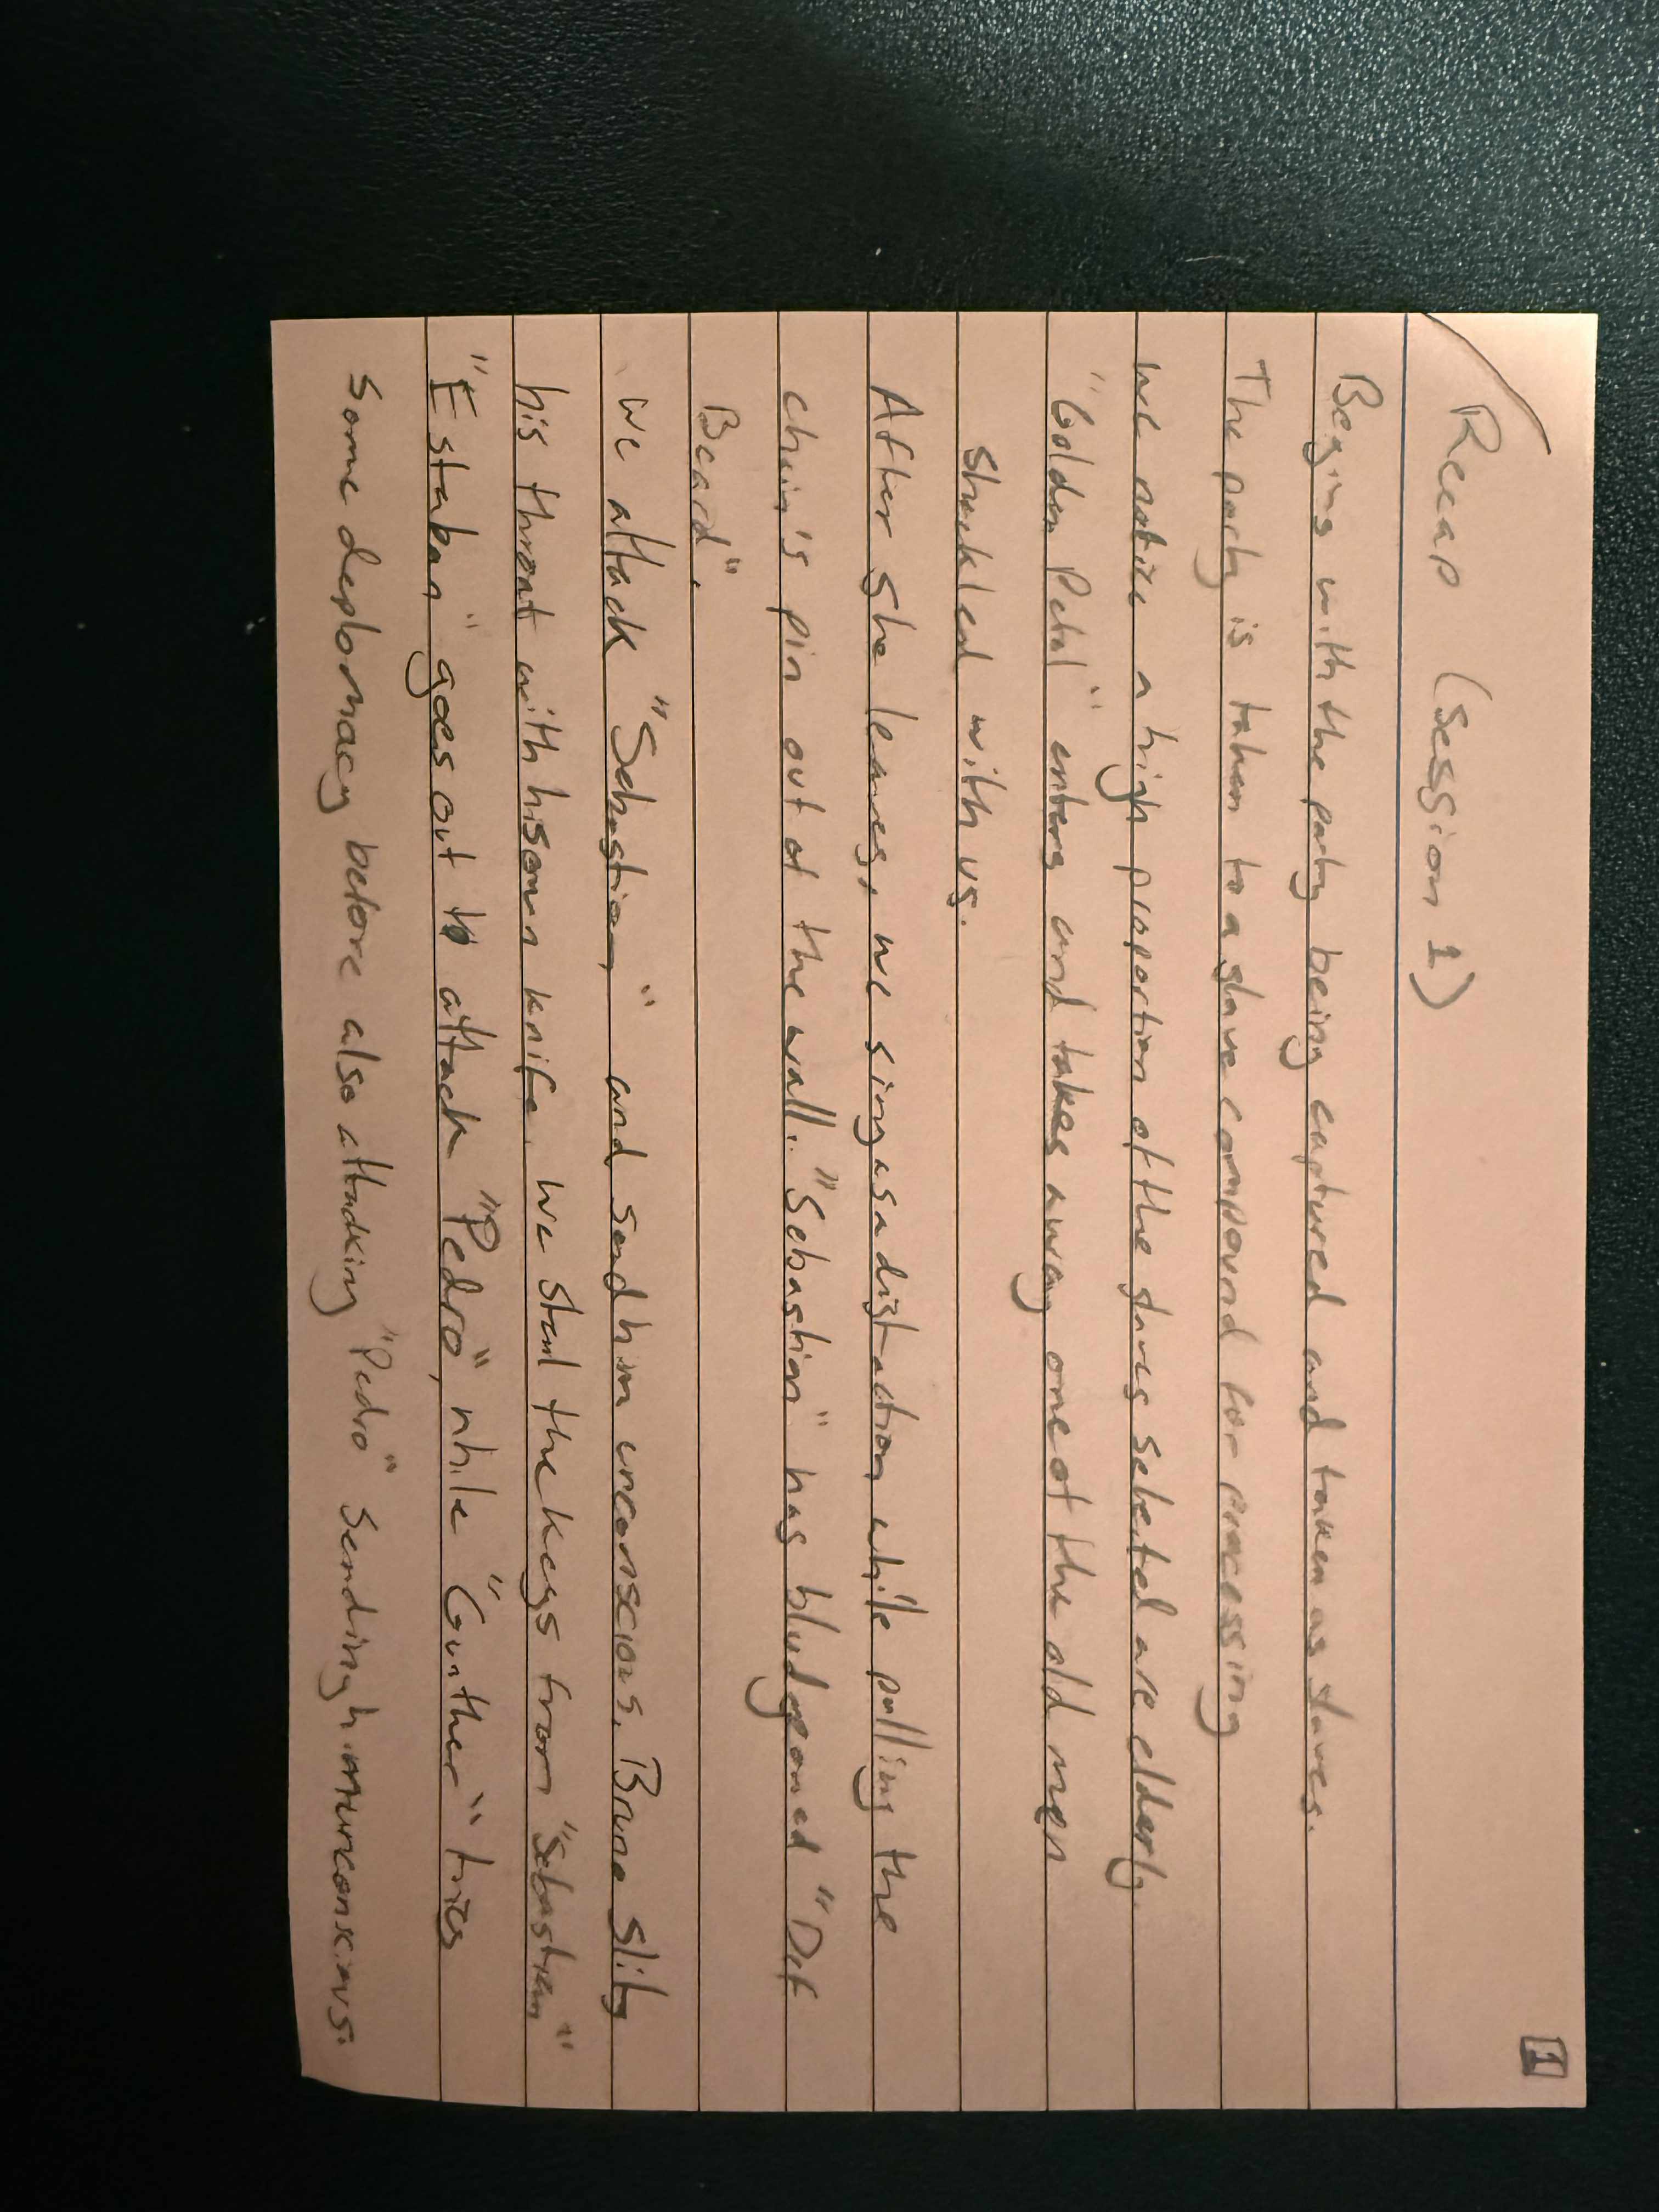 1
Recap (Session 1)
Begins with the party being captured and taken as slaves.
The party is taken to a slave compound for processing
we notice a high proportion of the slaves selected are elderly.
"Golden Petal" enters and takes away one of the old men
shackled with us.
After she leaves, we sing as a distraction while pulling the
chain's pin out of the wall. "Sebastian" has bludgeoned "Def
Beard".
we attack "Sebastian" and send him unconscious. Brune slits
his throat with his own knife. we steal the keys from "Sebastian"
"Estaban" goes out to attack "Pedro", while "Gunther" tries
some deplomacy before also attacking "Pedro" sending him unconscious.